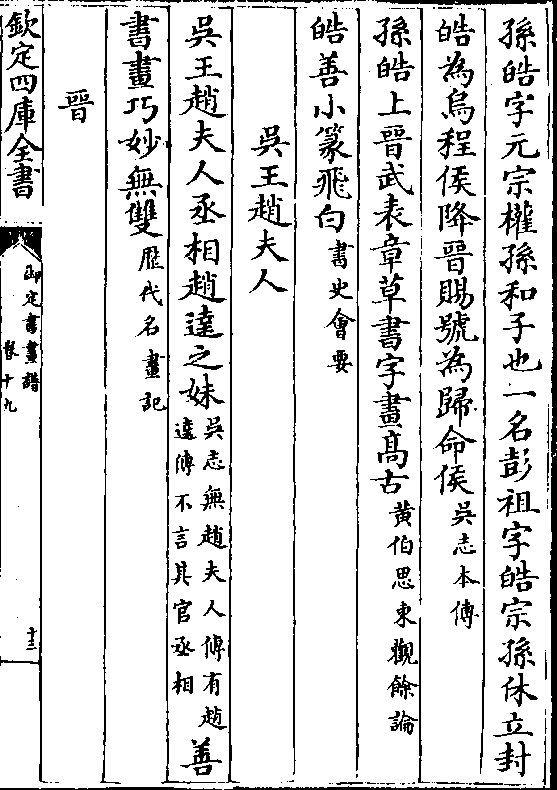 孫皓字元宗權孫和子也一名彭祖字皓宗孫休立封
皓為烏程侯降晉賜號為歸命侯吳志本傳
孫皓上晉武表章草書字畫髙古黄伯思東觀餘論
皓善小篆飛白書史會要
吳王趙夫人
吳王趙夫人丞相趙達之妹吳志無趙夫人傳有趙達傳不言其官丞相善
書畫巧妙無雙歴代名畫記
晉
欽定四庫全書
御定書畫譜
卷十九
十三